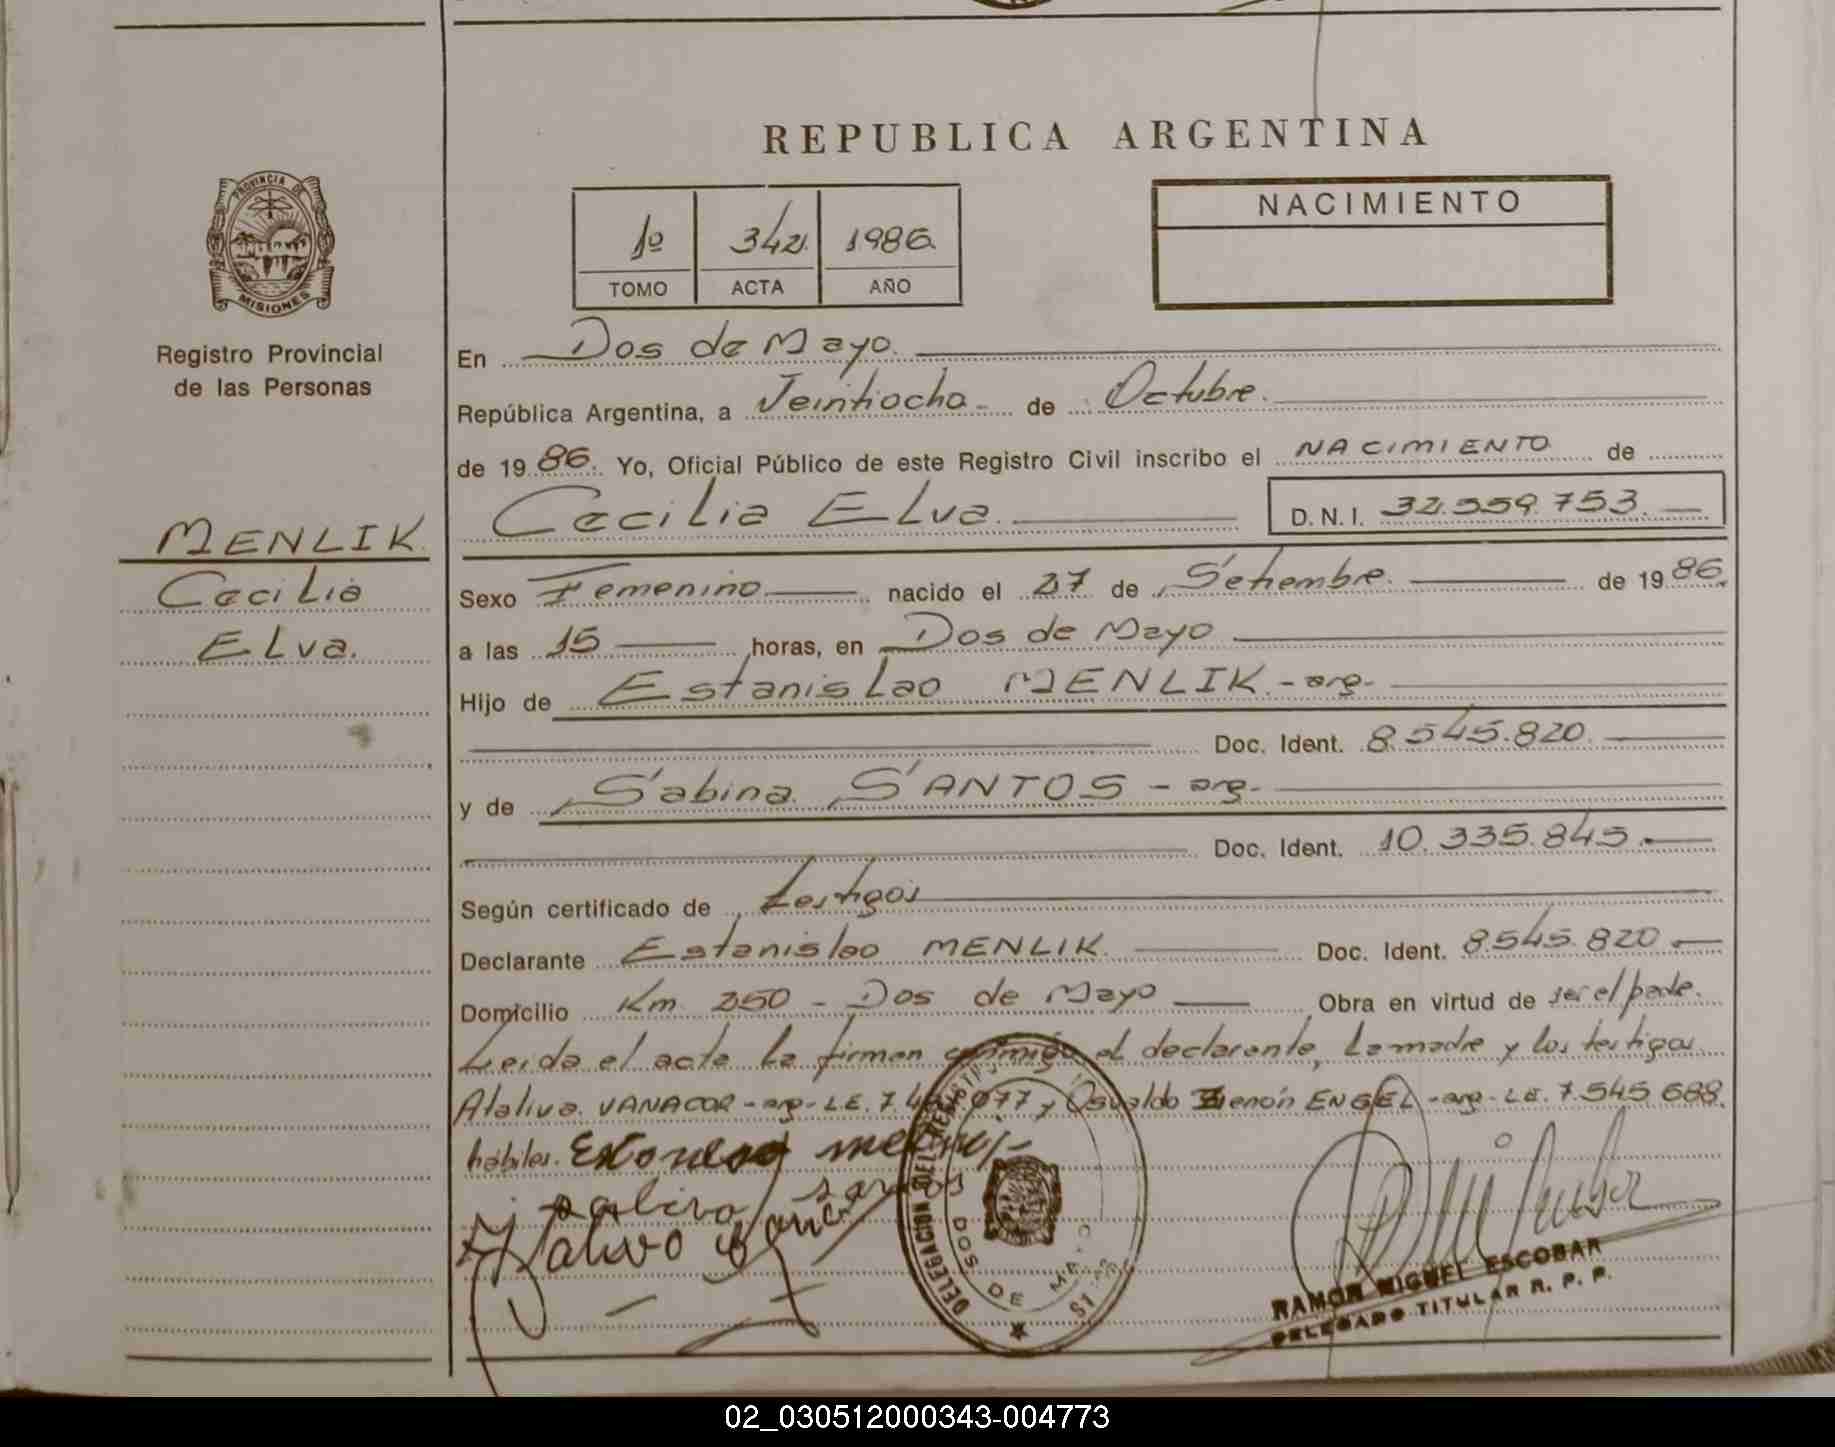 REPUBLICA ARGENTINA
1º 342 1986
TOMO ACTA AÑO
NACIMIENTO
PROVINCIA DE
MISIONES
Registro Provincial
de las Personas
MENLIK
Cecilia
Elva.
En Dos de Mayo.
República Argentina, a Veintiocho de Octubre.
de 1986. Yo, Oficial Público de este Registro Civil inscribo el NACIMIENTO de
Cecilia Elva. D.N.I. 32.559.753.
Sexo Femenino nacido el 27 de Setiembre. de 1986.
a las 15 horas, en Dos de Mayo
Hijo de Estanislao MENLIK - arg-
Doc. Ident. 8.545.820.
y de Sabina SANTOS - arg-
Doc. Ident. 10.335.845.
Según certificado de testigos
Declarante Estanislao MENLIK. Doc. Ident. 8.545.820
Domicilio Km. 250 - Dos de Mayo Obra en virtud de ser el padre.
Leida el acta la firman conmigo el declarante, la madre y los testigos
Ataliva. VANACOR - arg - L.E. 7. 077 y Osvaldo Zenón ENGEL - arg - L.E. 7.545.688.
hábiles.
DELEGACION DEL REGISTRO
DOS DE MAYO
RAMON MIGUEL ESCOBAR
DELEGADO TITULAR R. P. P.
02_030512000343-004773